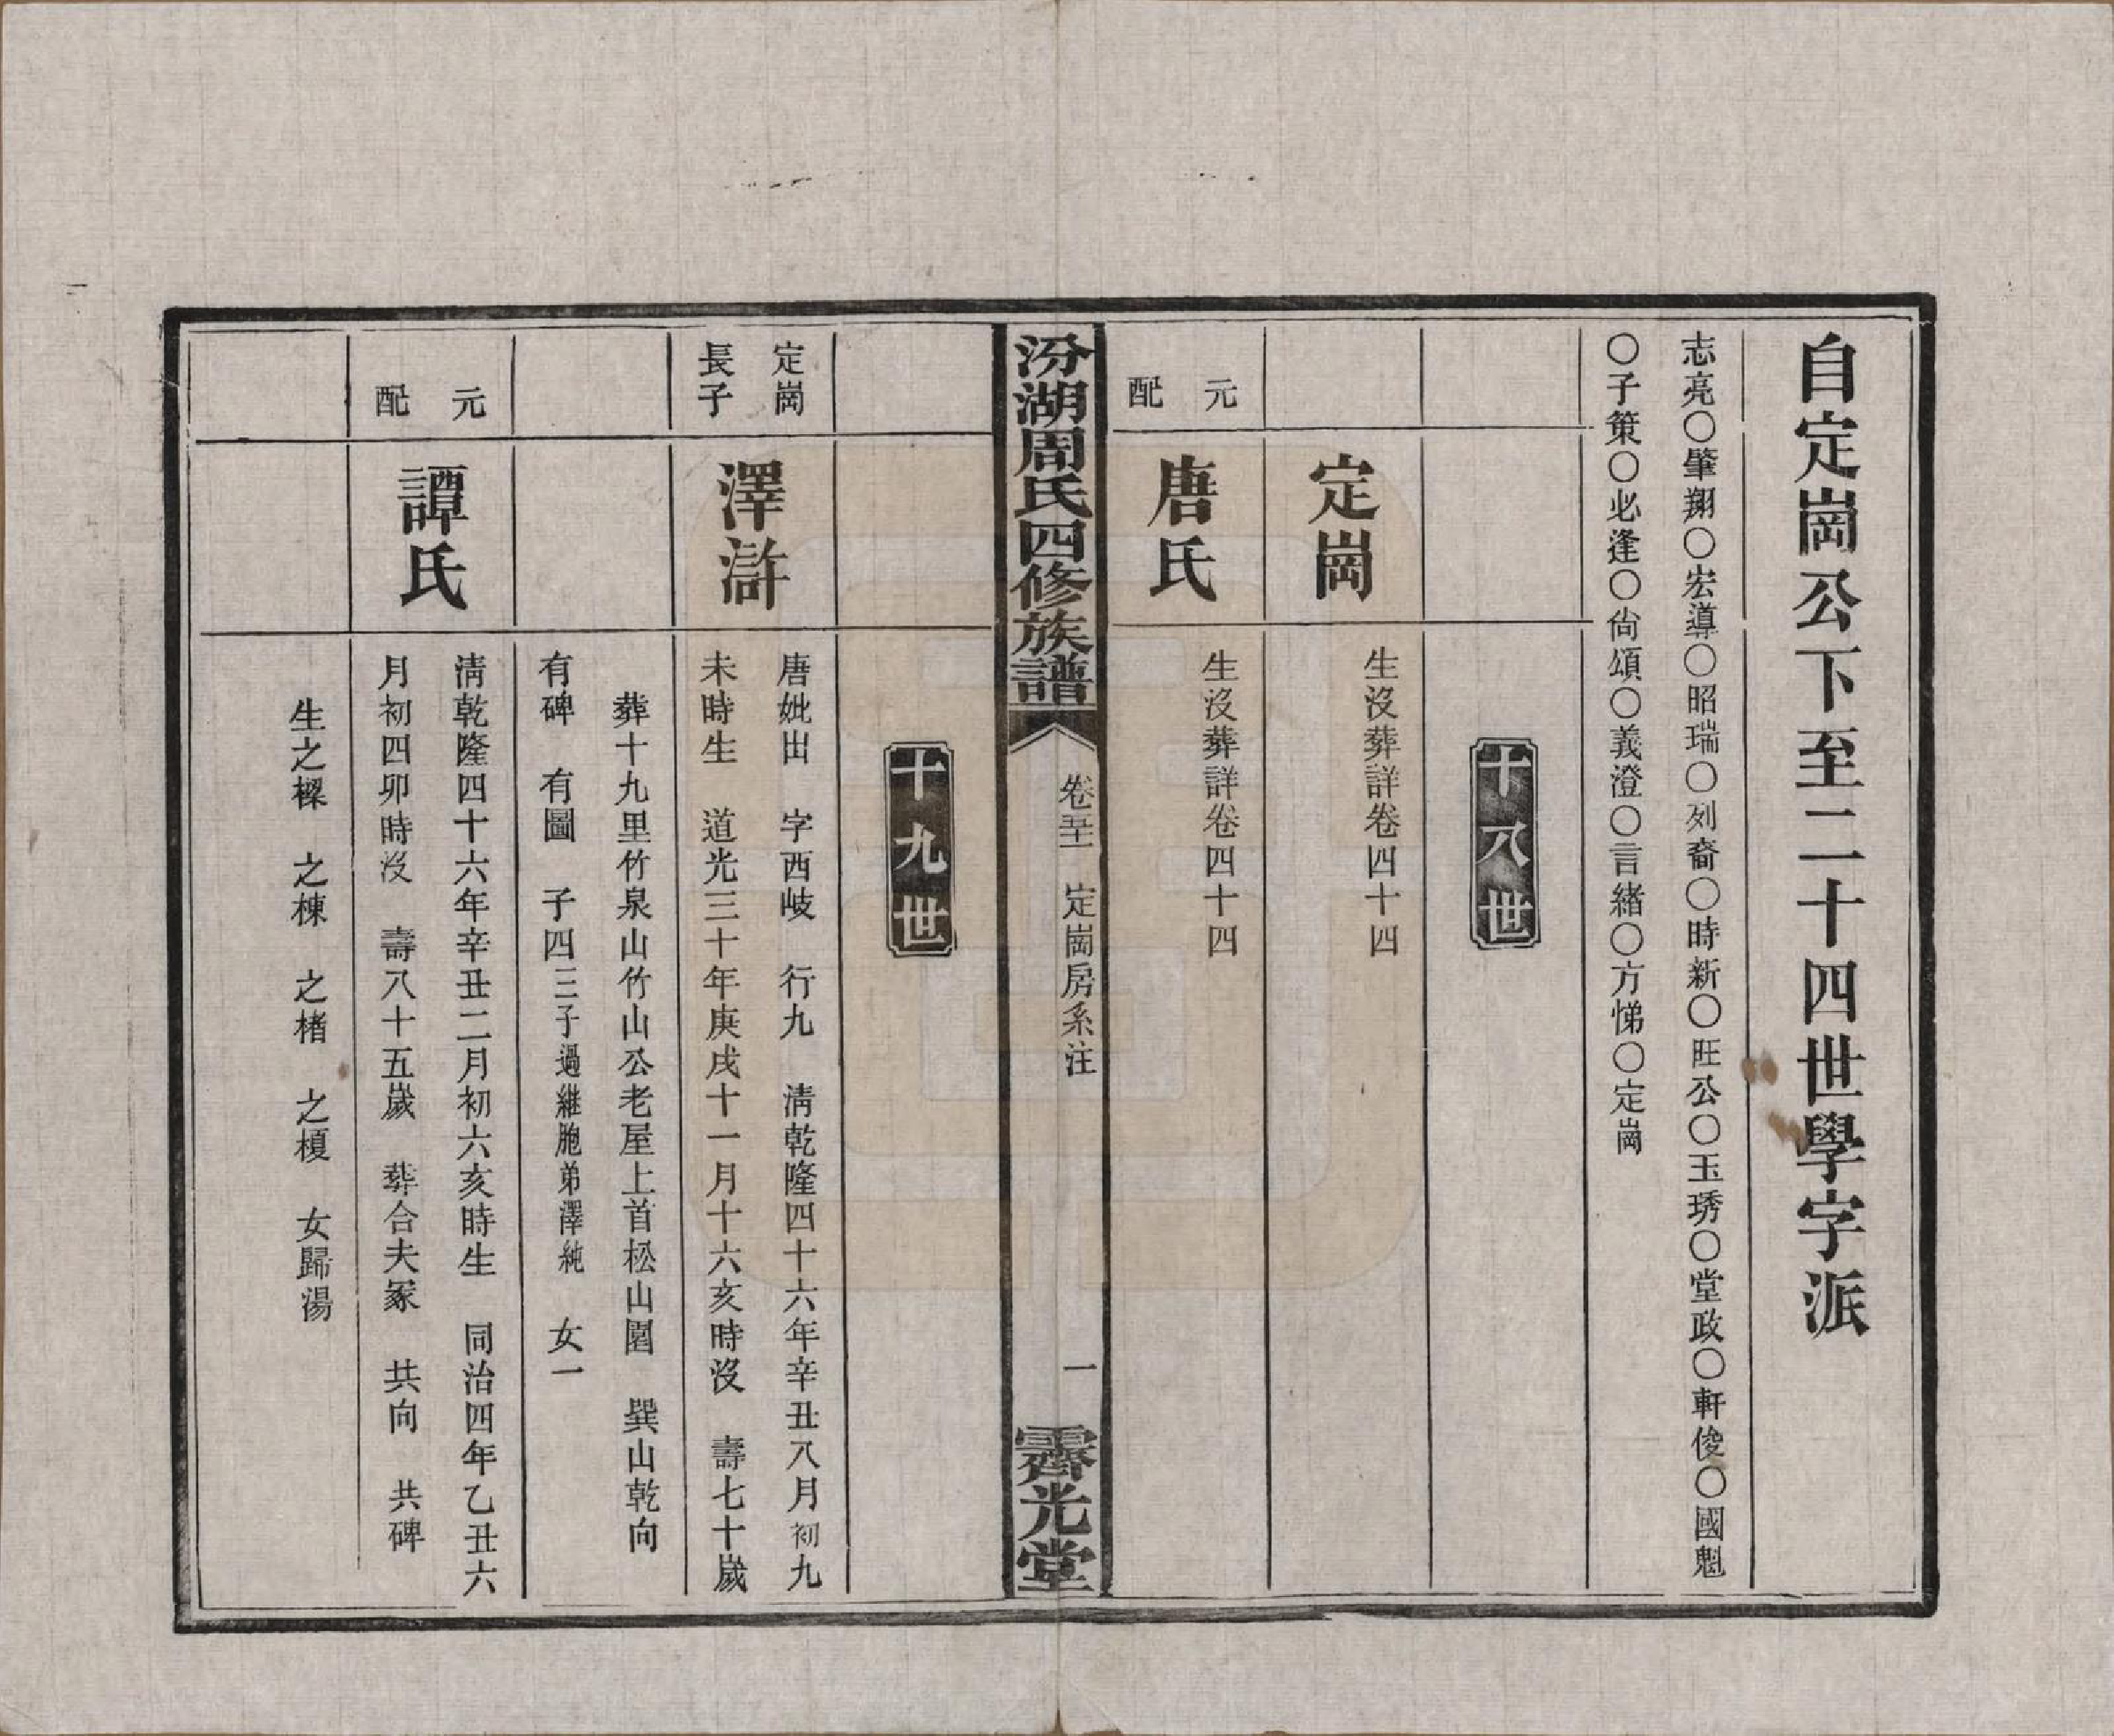 自定崗公下至二十四世學字派
志亮○肇翔○宏導○昭瑞○列裔○時新○旺公○玉琇○堂政○軒俊○國魁
○子策○必逢○尙頌○義澄○言緒○方悌○定崗
十八世
定崗
生沒葬詳卷四十四
元配
唐氏
生沒葬詳卷四十四
汾湖周氏四修族譜
卷五十一
定崗房系注
一
霽光堂
十九世
定崗
長子
澤滸
唐妣出　字西岐　行九　淸乾隆四十六年辛丑八月初九
未時生　道光三十年庚戌十一月十六亥時沒　壽七十歲
葬十九里竹泉山竹山公老屋上首松山園　巽山乾向
有碑　有圖　子四三子過繼胞弟澤純　女一
元配
譚氏
淸乾隆四十六年辛丑二月初六亥時生　同治四年乙丑六
月初四卯時沒　壽八十五歲　葬合夫冢　共向　共碑
生之樑　之棟　之楮　之榎　女歸湯